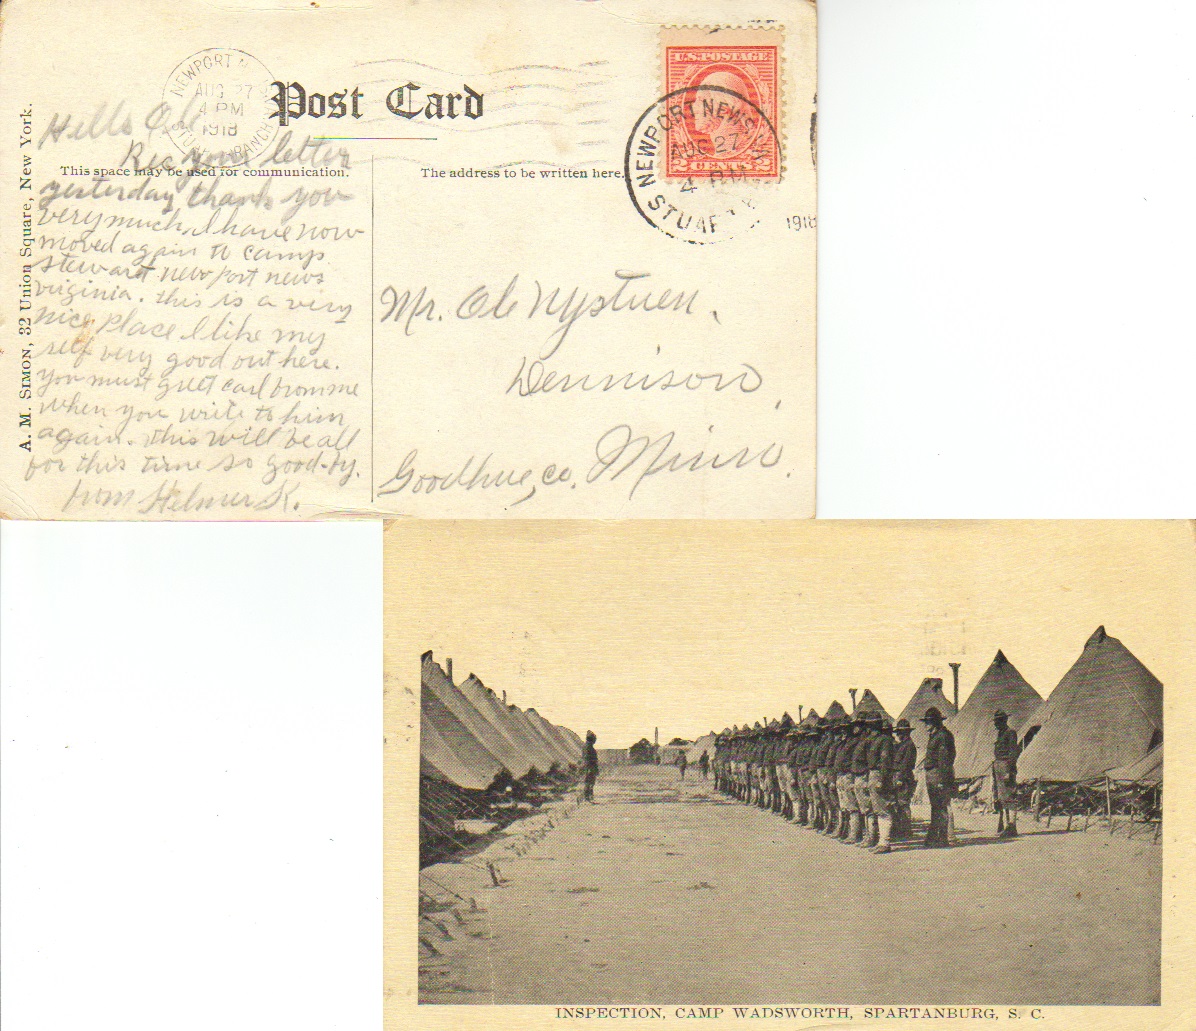 Post Card
This space may be used for communication.
The address to be written here.
A. M. SIMON, 32 Union Square, New York.
NEWPORT N
AUG 27
4 PM
1918
BRANCH
U.S. POSTAGE
2 CENTS 2
NEWPORT NEWS, VA.
AUG 27
4 PM
1918
Hello Ole
Rec your letter
yesterday thank you
very much, I have now
moved again to camp
stewart new port news
virginia. this is a very
nice place I like my
self very good out here.
you must greet carl from me
when you write to him
again. this will be all
for this time so good-by.
from Helmer K.
Mr. Ole Nystuen,
Dennison,
Goodhue, co. Minn.
INSPECTION, CAMP WADSWORTH, SPARTANBURG, S. C.